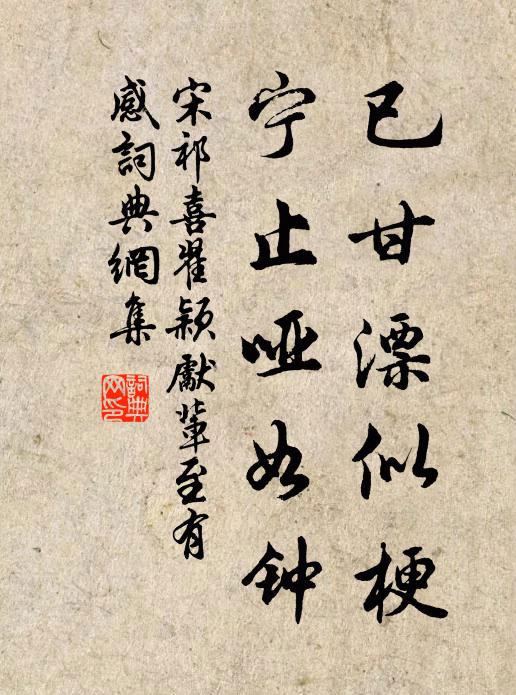 已甘漂似梗
宁止哑如钟
宋祁喜翟颖獻辈至有
感詞典網集
詞典
网印